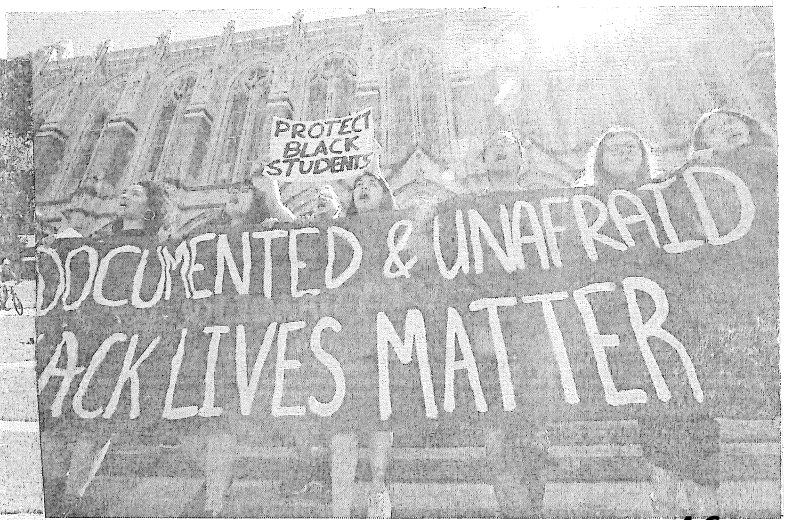 PROTECT
BLACK
STUDENTS
DOCUMENTED & UNAFRAID
ACK LIVES MATTER